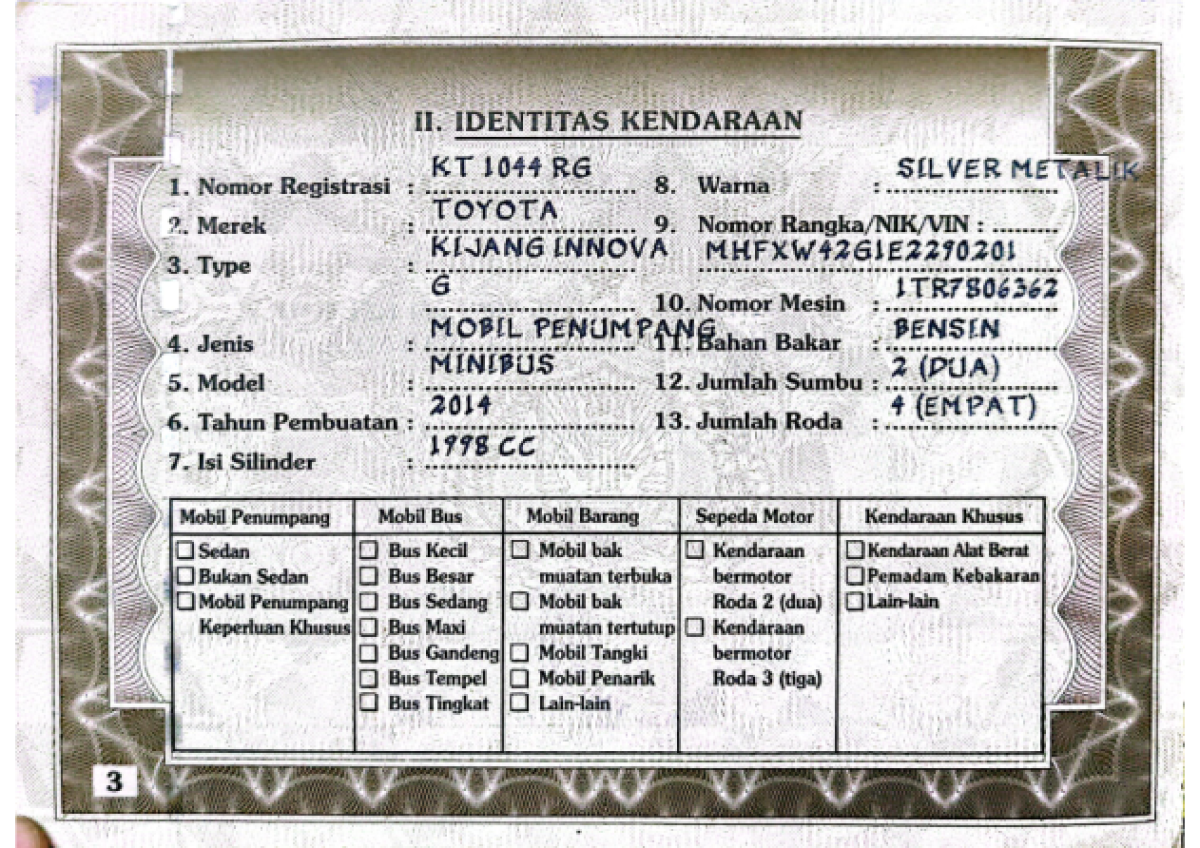 II. IDENTITAS KENDARAAN
1. Nomor Registrasi : KT 1044 RG
2. Merek : TOYOTA
3. Type : KIJANG INNOVA
G
4. Jenis : MOBIL PENUMPANG
5. Model : MINIBUS
6. Tahun Pembuatan : 2014
7. Isi Silinder : 1998 CC
8. Warna : SILVER METALIK
9. Nomor Rangka/NIK/VIN :
MHFXW42G1E2290201
10. Nomor Mesin : 1TR7806362
11. Bahan Bakar : BENSIN
12. Jumlah Sumbu : 2 (DUA)
13. Jumlah Roda : 4 (EMPAT)
Mobil Penumpang
☐ Sedan
☐ Bukan Sedan
☐ Mobil Penumpang
Keperluan Khusus
Mobil Bus
☐ Bus Kecil
☐ Bus Besar
☐ Bus Sedang
☐ Bus Maxi
☐ Bus Gandeng
☐ Bus Tempel
☐ Bus Tingkat
Mobil Barang
☐ Mobil bak
muatan terbuka
☐ Mobil bak
muatan tertutup
☐ Mobil Tangki
☐ Mobil Penarik
☐ Lain-lain
Sepeda Motor
☐ Kendaraan
bermotor
Roda 2 (dua)
☐ Kendaraan
bermotor
Roda 3 (tiga)
Kendaraan Khusus
☐ Kendaraan Alat Berat
☐ Pemadam Kebakaran
☐ Lain-lain
3